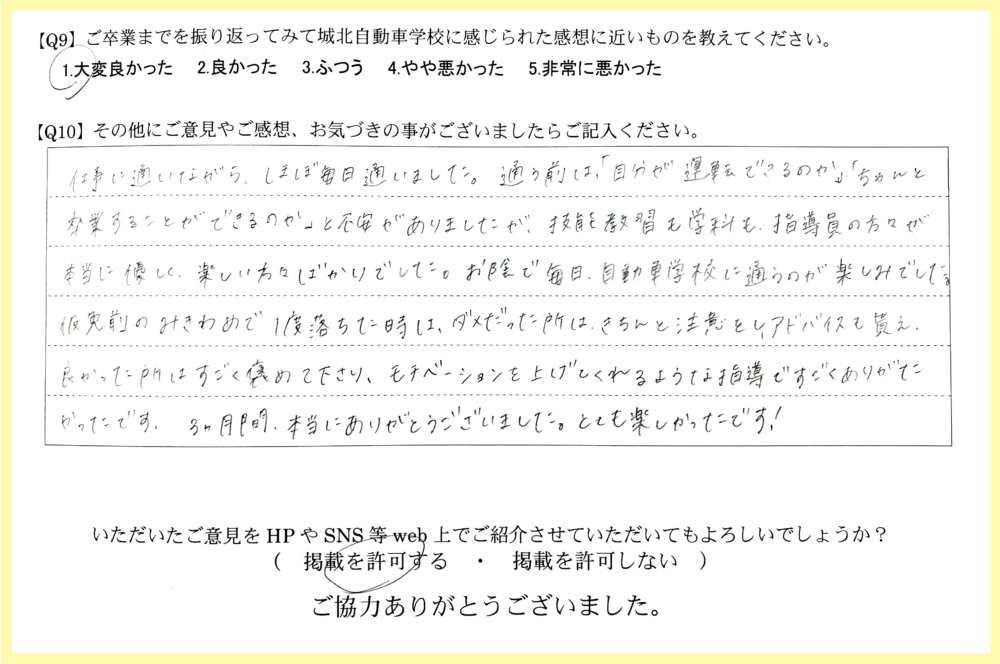 【Q9】ご卒業までを振り返ってみて城北自動車学校に感じられた感想に近いものを教えてください。
1.大変良かった　2.良かった　3.ふつう　4.やや悪かった　5.非常に悪かった
【Q10】その他にご意見やご感想、お気づきの事がございましたらご記入ください。
仕事に通いながら、ほぼ毎日通いました。通う前は、「自分が運転できるのか」、「ちゃんと
卒業することができるのか」と不安がありましたが、技能教習も学科も、指導員の方々が
本当に優しく、楽しい方々ばかりでした。お陰で毎日、自動車学校に通うのが楽しみでした。
仮免前のみきわめで1度落ちた時は、ダメだった所は、きちんと注意をし、アドバイスも貰え、
良かった所はすごく褒めて下さり、モチベーションを上げてくれるような指導ですごくありがた
かったです。3ヶ月間、本当にありがとうございました。とても楽しかったです!
いただいたご意見をHPやSNS等web上でご紹介させていただいてもよろしいでしょうか？
（　掲載を許可する　・　掲載を許可しない　）
ご協力ありがとうございました。